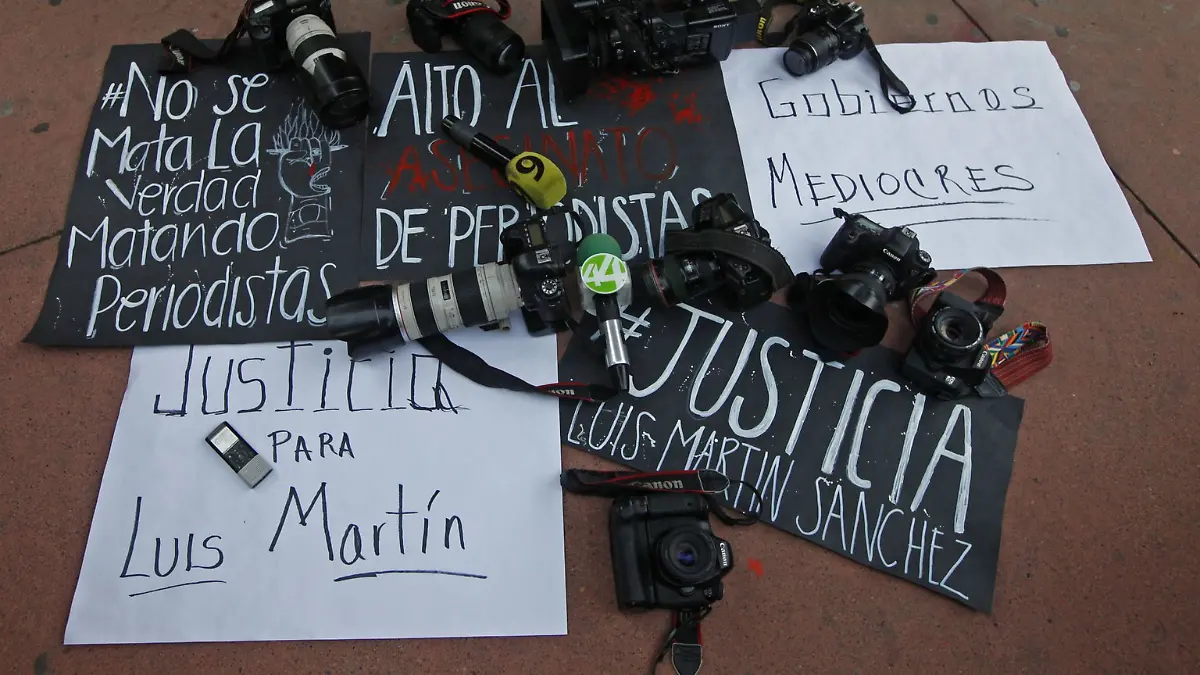 #No se
Mata La
Verdad
Matando
Periodistas
ALTO AL
ASESINATO
DE PERIODISTAS
Gobiernos
MEDIOCRES
JUSTICIA
PARA
LUIS Martín
#JUSTICIA
LUIS MARTIN SANCHEZ
Canon
Canon
Canon
SONY
9
44